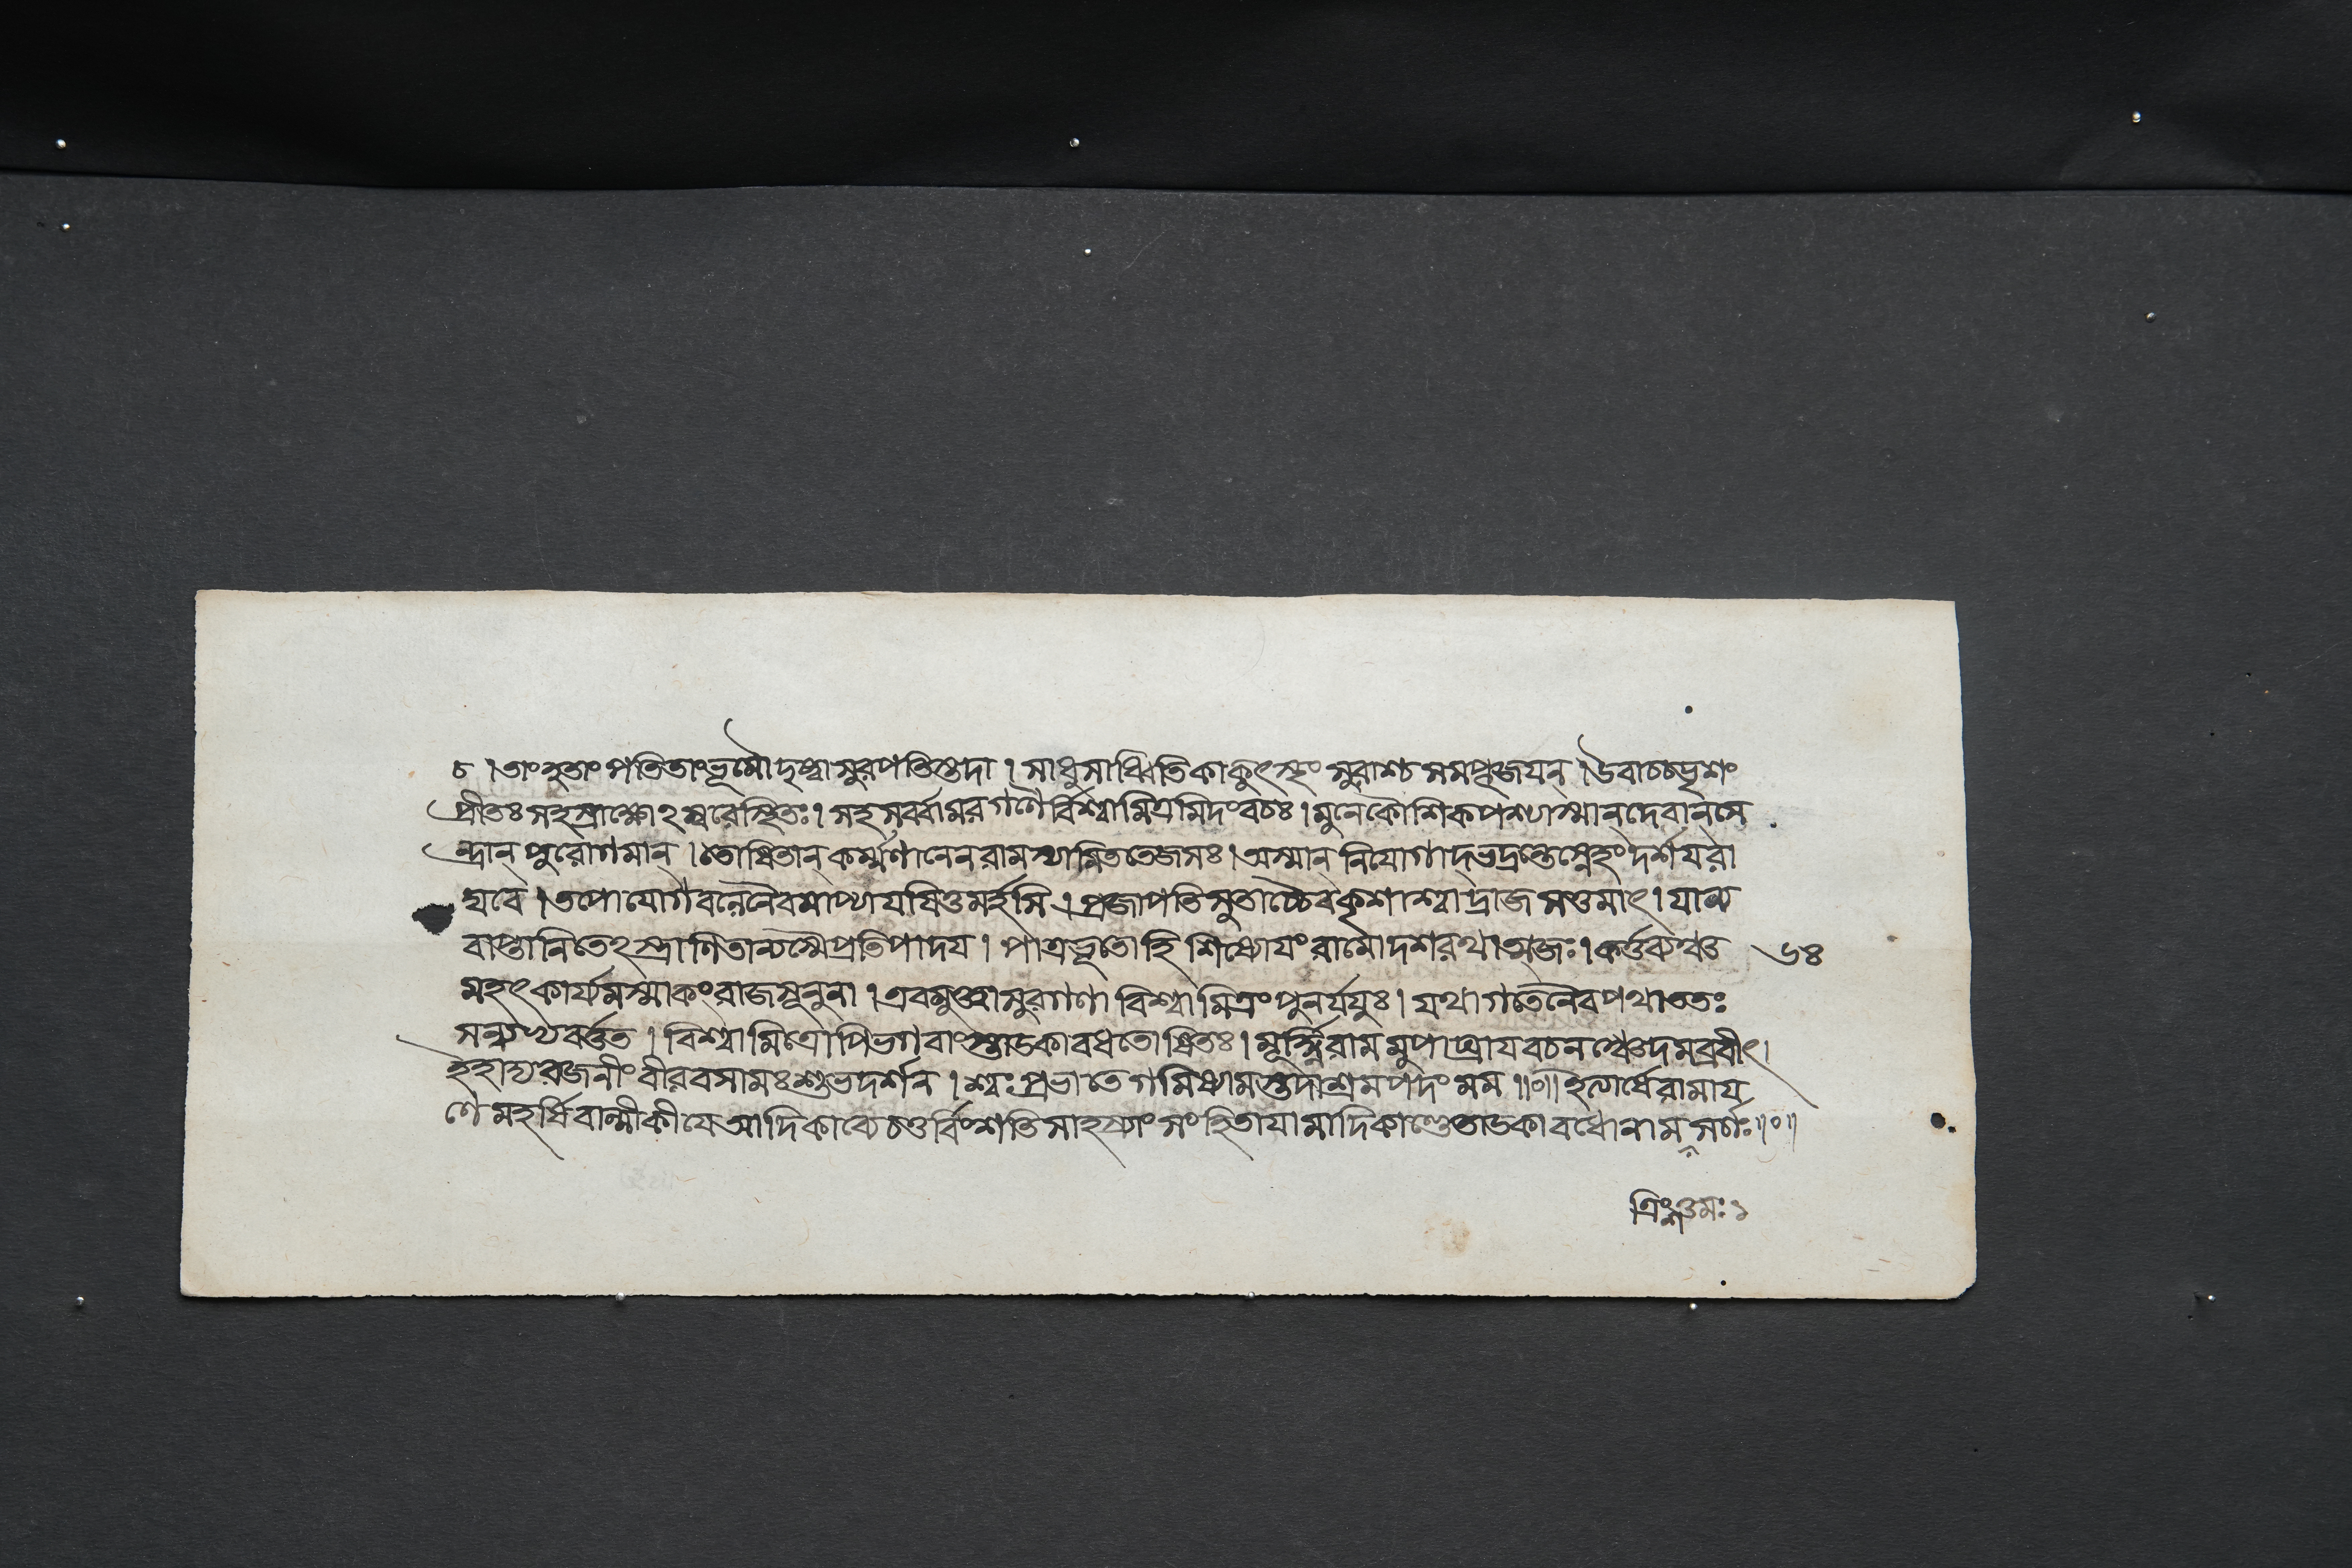 চ । তাং হতাং পতিতাং ভূমৌ দৃষ্ট্বা সুরপতিস্তদা । সাধু সাধ্বিতি কাকুৎস্থং সুরাশ্চ সমপূজয়ন্ । উবাচ চ ভৃশং
প্রীতঃ সহস্রাক্ষোঽম্বরে স্থিতঃ । সহ সর্ব্বামরগণৈর্বিশ্বামিত্রমিদং বচঃ । মুনে কৌশিক পশ্যাস্মান্ দেবান্ সে
ন্দ্রান্ পুরোগমান্ । তোষিতান্ কর্ম্মণানেন রামস্যামিততেজসঃ । অস্মান্ নিযোগাদ্ ভদ্রন্তে স্নেহং দর্শয় রা
ঘবে । তপোযোগবলেনৈবমাপ্যায়য়িতুমর্হসি । প্রজাপতিসুতাচ্চৈব কৃশাশ্বাদ্রাজসত্তমাৎ । যান্য
বাপ্তানি তেঽস্ত্রাণি তান্যস্মৈ প্রতিপাদয় । পাত্রভূতো হি শিষ্যোয়ং রামো দশরথাত্মজঃ । কর্ত্তব্যঞ্চ ৬৪
মহৎ কার্য্যমস্মাকং রাজসূনুনা । এবমুক্ত্বা সুরগণা বিশ্বামিত্রং পুনর্যযুঃ । যথাগতেনৈব পথা ততঃ
সন্ধ্যাপ্যবর্ত্তত । বিশ্বামিত্রোপি ভগবাংস্তাডকাবধতোষিতঃ । মূর্দ্ধ্নি রামমুপাঘ্রায় বচনঞ্চেদমব্রবীৎ ।
ইহাদ্য রজনীং বীর বসামঃ শুভদর্শন । শ্বঃ প্রভাতে গমিষ্যামস্তদাশ্রমপদং মম ॥০॥ ইত্যার্ষে রামায়
ণে মহর্ষিবাল্মীকীয়ে আদিকাব্যে চতুর্বিংশতিসাহস্র্যাং সংহিতায়ামাদিকাণ্ডে তাডকাবধো নাম সর্গঃ ॥০॥
ত্রিংশত্তমঃ ১